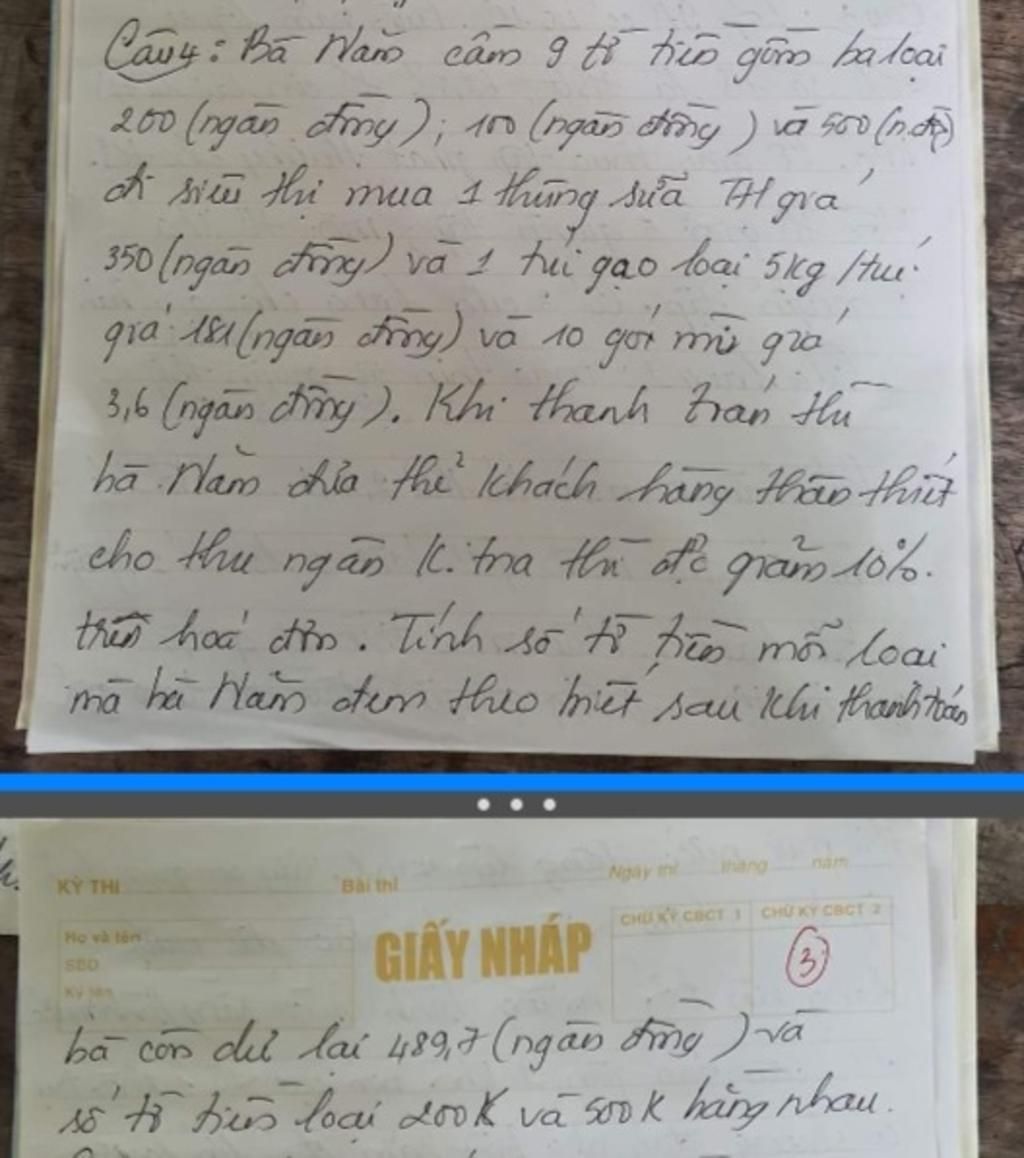 Câu 4: Bà Năm cầm 9 tờ tiền gồm ba loại
200 (ngàn đồng); 100 (ngàn đồng) và 500 (n.đg)
đi siêu thị mua 1 thùng sữa TH giá
350 (ngàn đồng) và 1 túi gạo loại 5kg/túi
giá 181 (ngàn đồng) và 10 gói mì giá
3,6 (ngàn đồng). Khi thanh toán thì
bà Năm đưa thẻ khách hàng thân thiết
cho thu ngân k. tra thì đc giảm 10%
trên hoá đơn. Tính số tờ tiền mỗi loại
mà bà Năm đem theo biết sau khi thanh toán
KỲ THI Bài thi Ngày thi tháng năm
Họ và tên :
SBD :
Ký tên :
GIẤY NHÁP
CHỮ KÝ CBCT 1 CHỮ KÝ CBCT 2
3
bà còn dư lại 489,7 (ngàn đồng) và
số tờ tiền loại 200K và 500K bằng nhau.